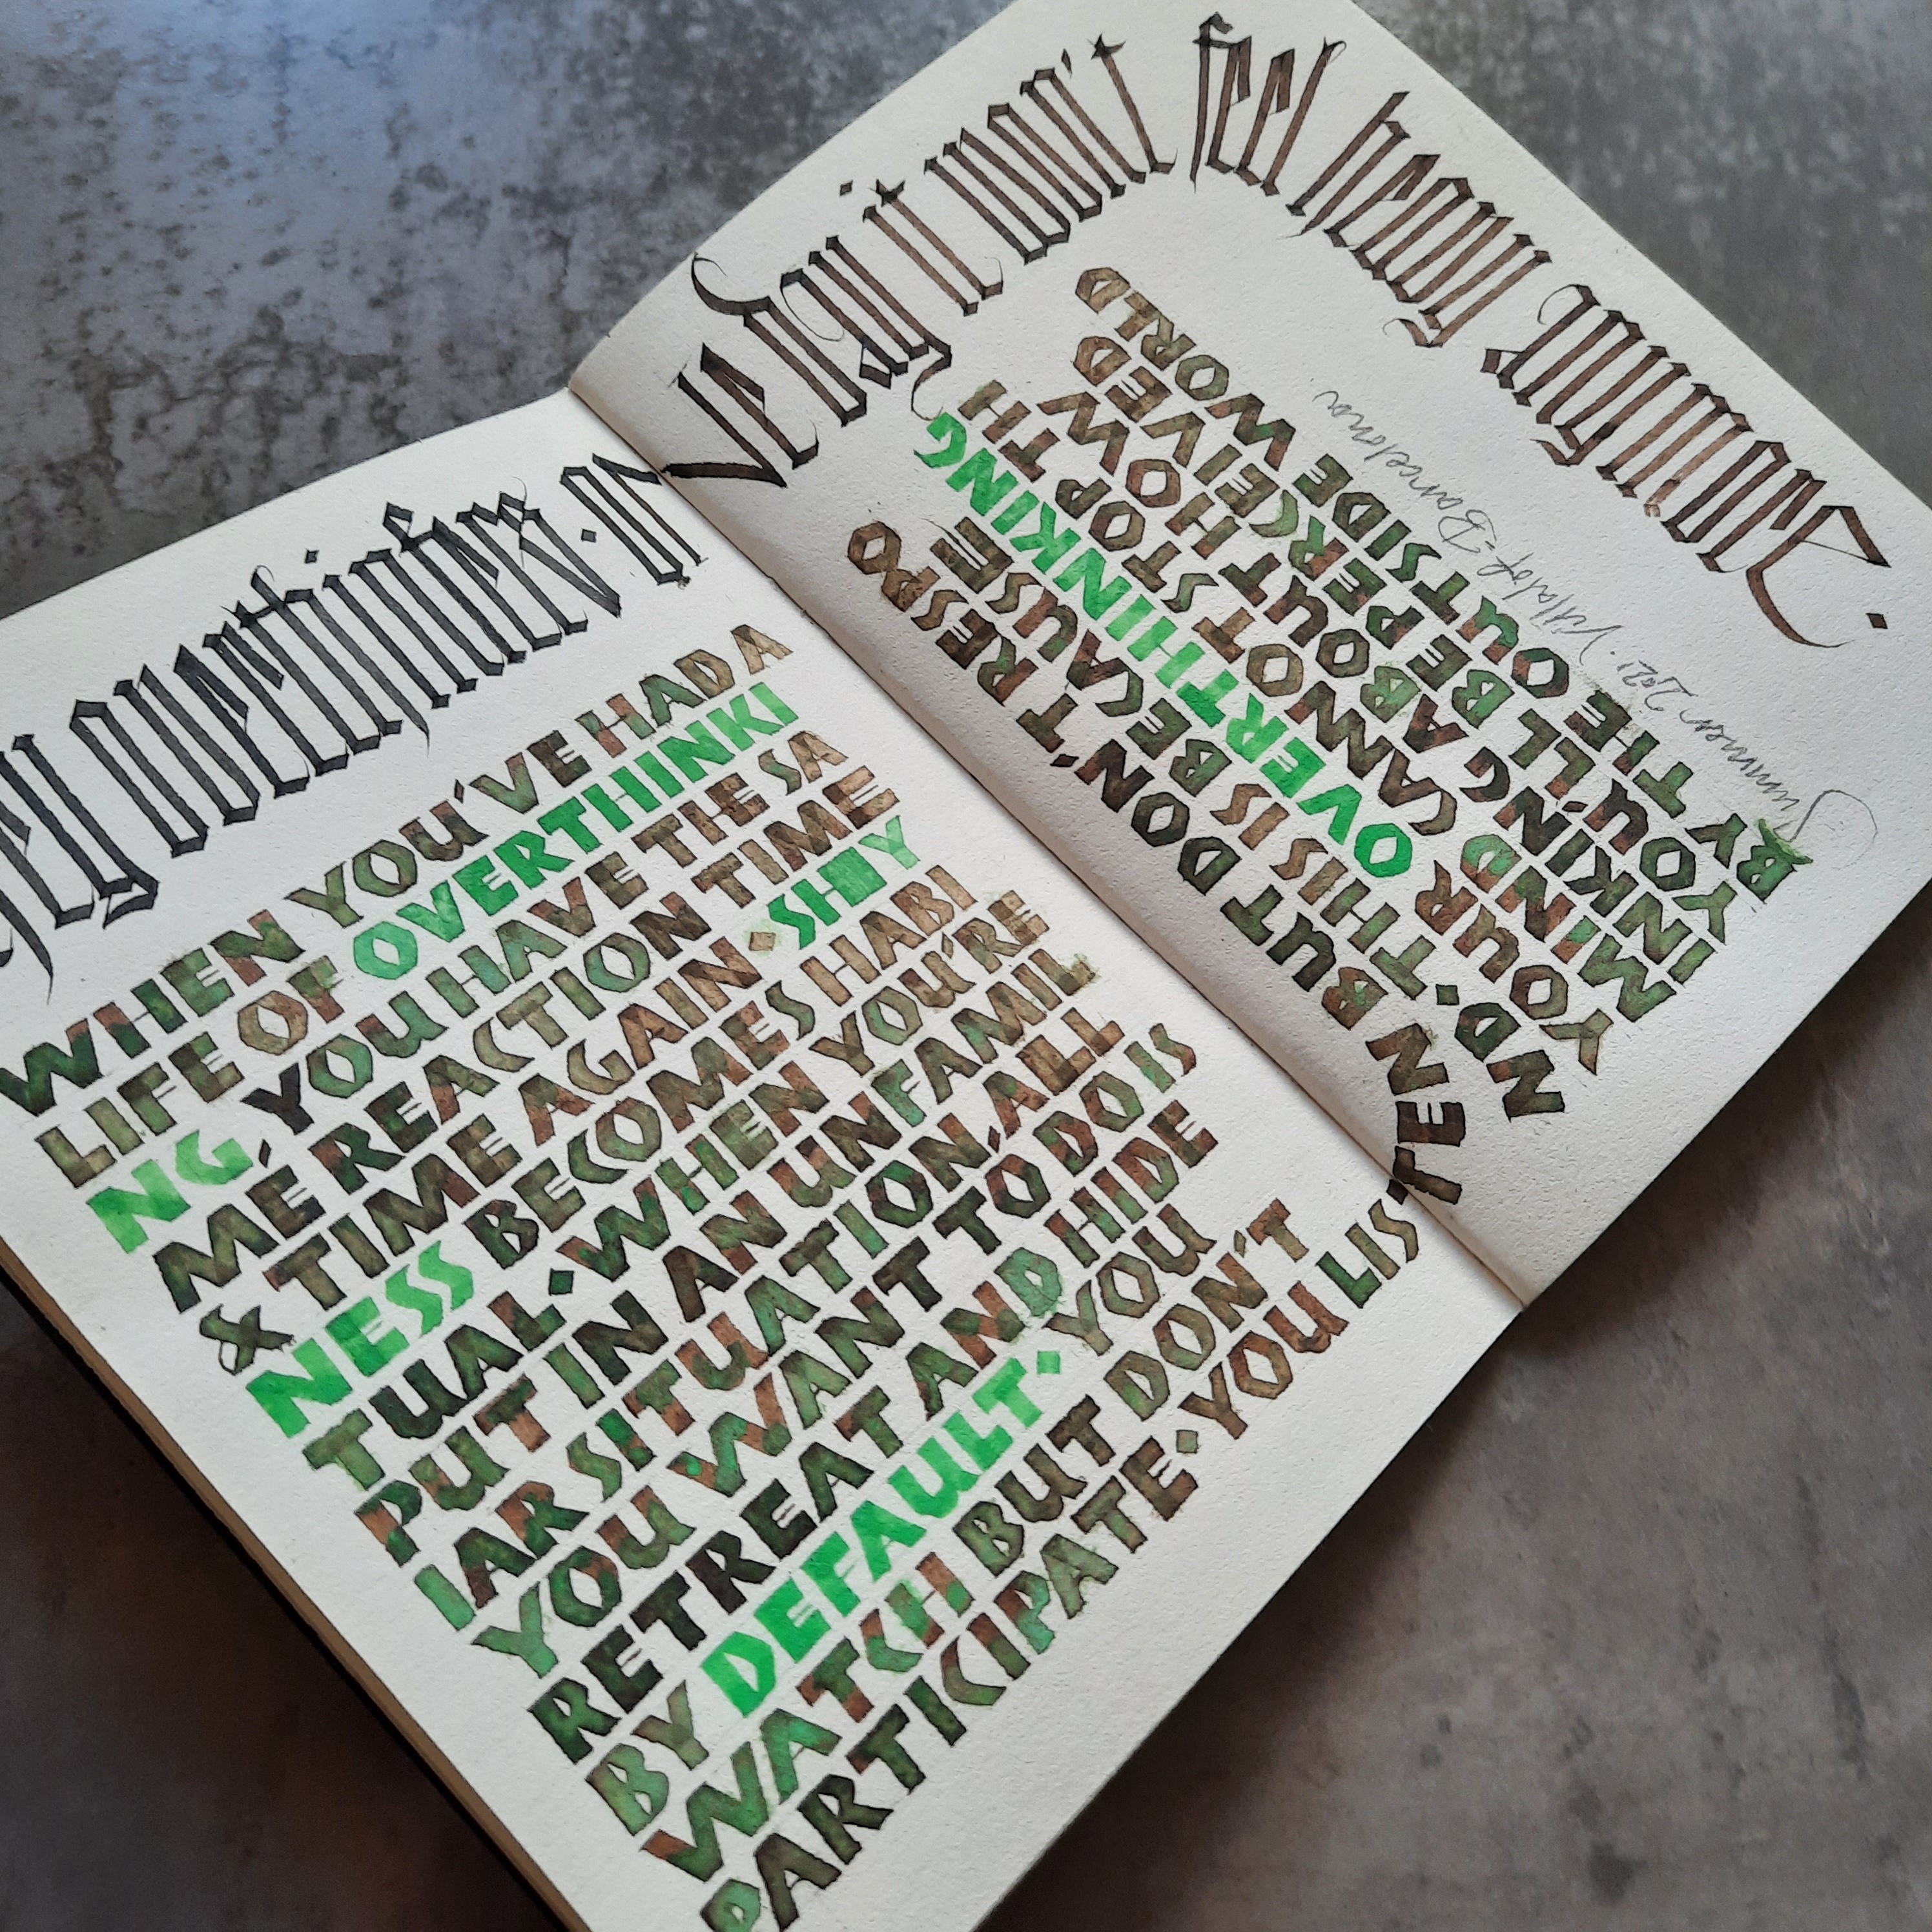 hey overthinkers · one day it won't feel heavy anymore.
WHEN YOU'VE HAD A
LIFE OF OVERTHINKI
NG YOU HAVE THE SA
ME REACTION TIME
& TIME AGAIN · SHY
NESS BECOMES HABI
TUAL · WHEN YOU'RE
PUT IN AN UNFAMIL
IAR SITUATION, ALL
YOU WANT TO DO IS
RETREAT AND HIDE
BY DEFAULT · YOU
WATCH BUT DON'T
PARTICIPATE · YOU LISTEN BUT DON'T RESPO
ND · THIS IS BECAUSE
YOUR OVERTHINKING
MIND CANNOT STOP TH
INKING ABOUT HOW
YOU'LL BE PERCEIVED
BY THE OUTSIDE WORLD
Summer 2021. Barcelona